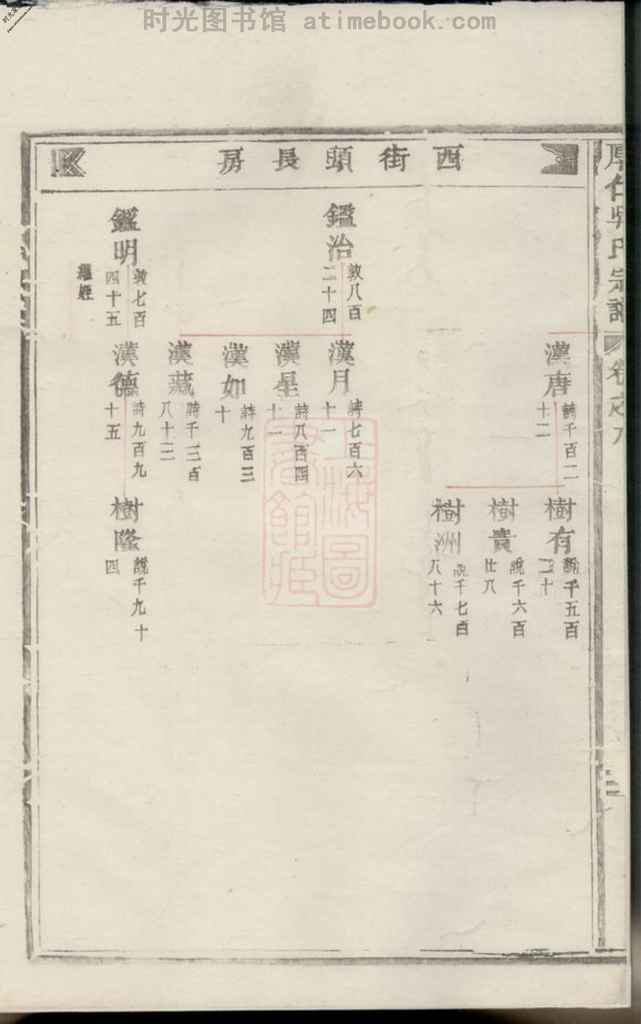 时光图书馆 atimebook.com
西街頭長房
厚仁吳氏宗譜
卷之九
漢唐
詩千百二
十二
樹有
說千五百
二十
樹貴
說千六百
廿八
樹洲
說千七百
八十六
鑑治
敦八百
二十四
漢月
詩七百六
十一
漢星
詩八百四
十二
漢如
詩九百三
十
漢藏
詩千三百
八十三
鑑明
敦七百
四十五
繼姪
漢德
詩九百九
十五
樹隆
說千九十
四
上海圖
書館藏